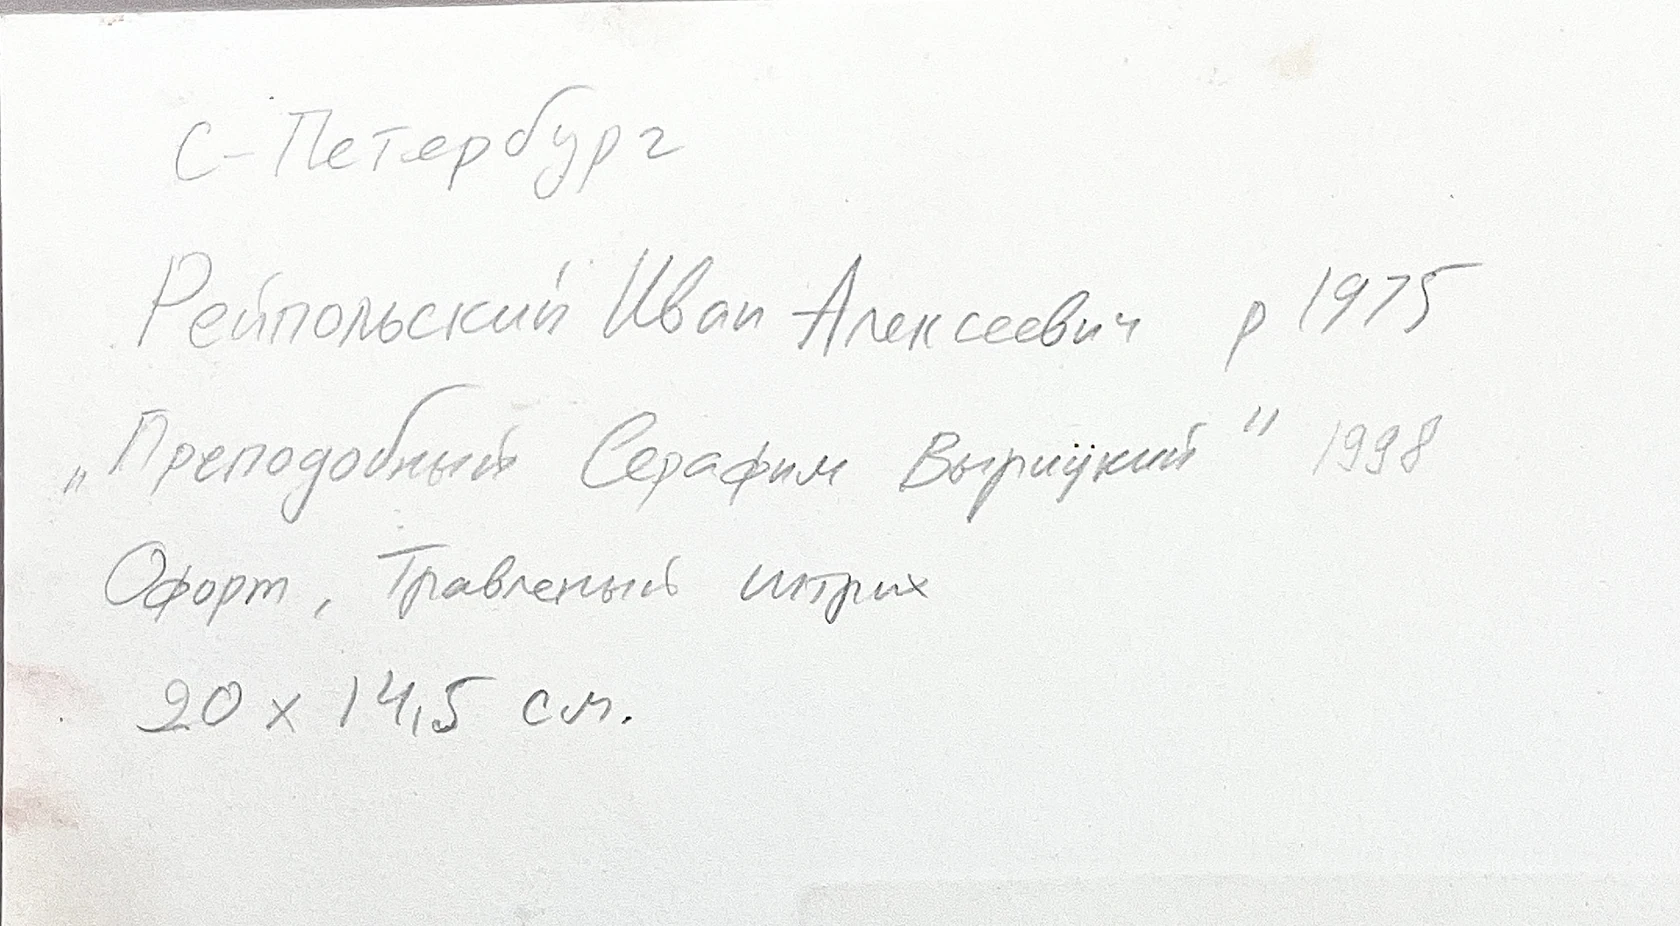 С-Петербург
Рейпольский Иван Алексеевич р 1975
„Преподобный Серафим Вырицкий" 1998
Офорт, Травленый штрих
20 х 14,5 см.